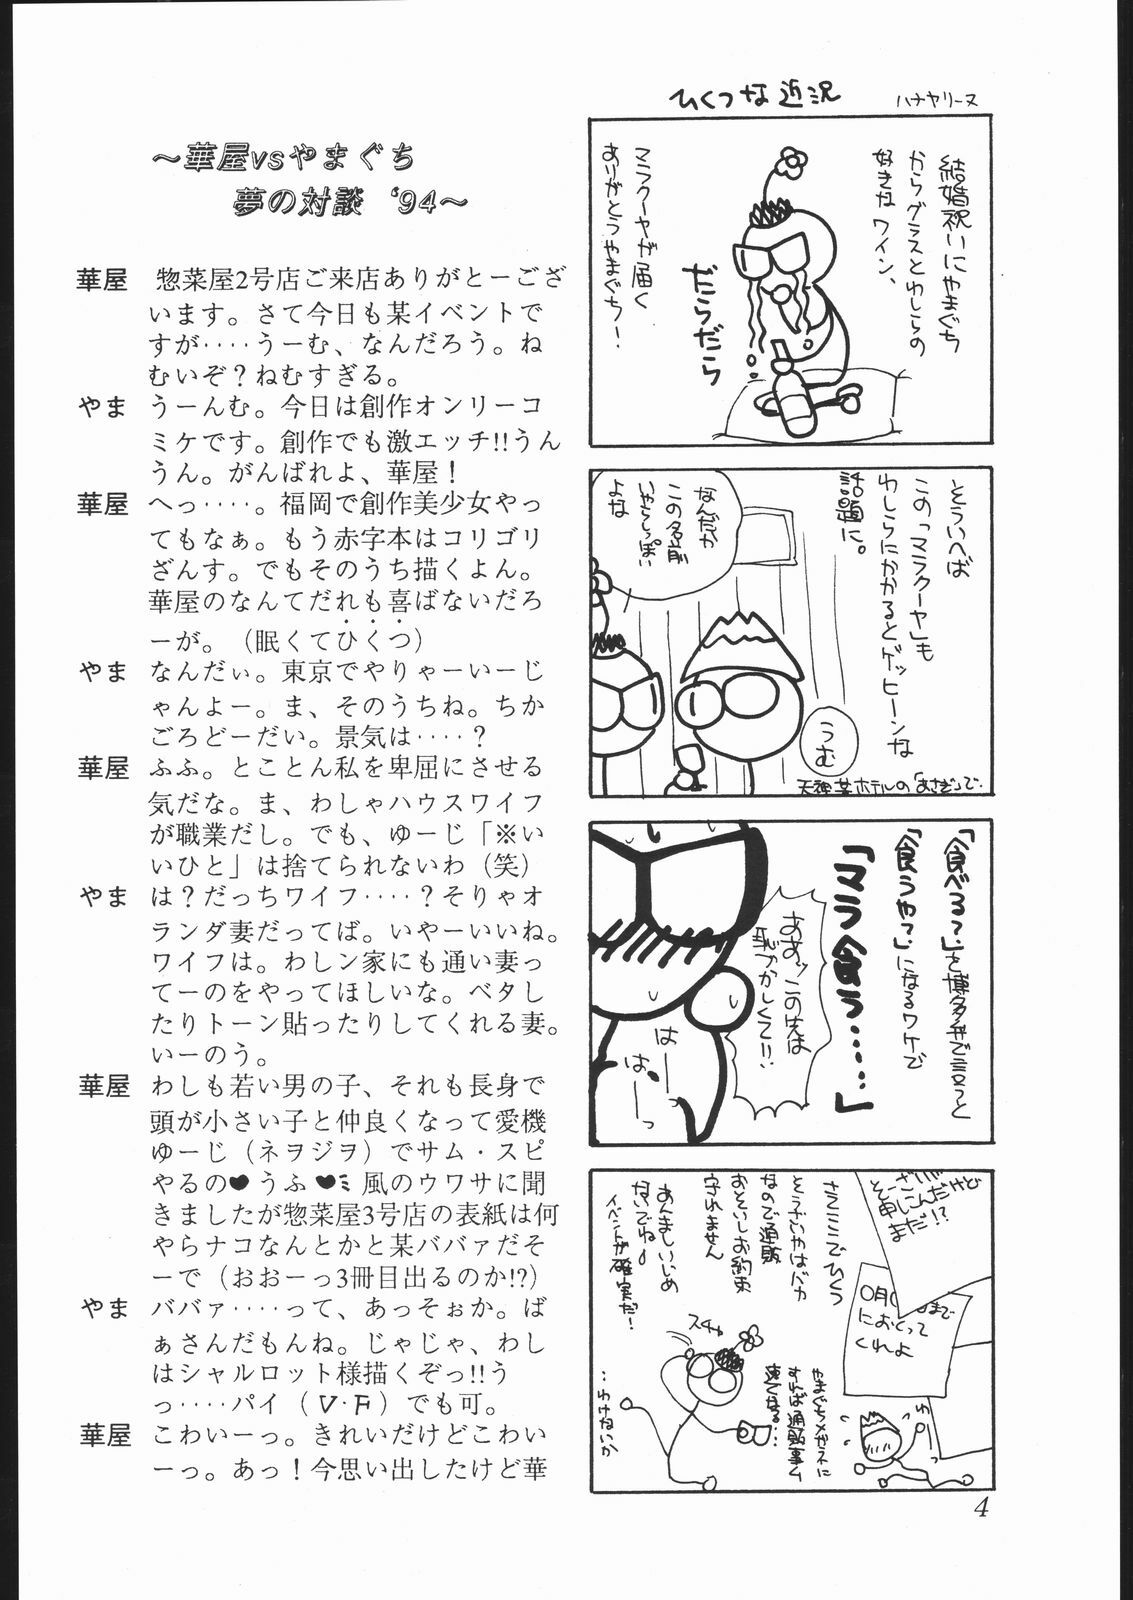 ～華屋vsやまぐち
夢の対談　‘94～
華屋　惣菜屋2号店ご来店ありがとーござ
います。さて今日も某イベントで
すが‥‥うーむ、なんだろう。ね
むいぞ？ねむすぎる。
やま　うーんむ。今日は創作オンリーコ
ミケです。創作でも激エッチ!!うん
うん。がんばれよ、華屋！
華屋　へっ‥‥。福岡で創作美少女やっ
てもなぁ。もう赤字本はコリゴリ
ざんす。でもそのうち描くよん。
華屋のなんてだれも喜ばないだろ
ーが。（眠くてひくつ）
やま　なんだぃ。東京でやりゃーいーじ
ゃんよー。ま、そのうちね。ちか
ごろどーだい。景気は‥‥？
華屋　ふふ。とことん私を卑屈にさせる
気だな。ま、わしゃハウスワイフ
が職業だし。でも、ゆーじ「※い
いひと」は捨てられないわ（笑）
やま　は？だっちワイフ‥‥？そりゃオ
ランダ妻だってば。いやーいいね。
ワイフは。わしン家にも通い妻っ
てーのをやってほしいな。ベタし
たりトーン貼ったりしてくれる妻。
いーのう。
華屋　わしも若い男の子、それも長身で
頭が小さい子と仲良くなって愛機
ゆーじ（ネヲジヲ）でサム・スピ
やるの♥うふ♥ミ風のウワサに聞
きましたが惣菜屋3号店の表紙は何
やらナコなんとかと某ババァだそ
ーで（おおーっ3冊目出るのか!?）
やま　ババァ‥‥って、あっそぉか。ば
ぁさんだもんね。じゃじゃ、わし
はシャルロット様描くぞっ!!う
っ‥‥パイ（V・F）でも可。
華屋　こわいーっ。きれいだけどこわい
ーっ。あっ！今思い出したけど華
ひくつな近況　ハナヤリーヌ
結婚祝いにやまぐち
からグラスとわしらの
好きなワイン、
マラクーヤが届く
ありがとうやまぐち！
だらだら
そういへば
この「マラクーヤ」も
わしらにかかるとゲッヒーンな
話題に。
なんだか
この名前
いやらしっぽい
よな
うむ
天神某ホテルの「あさぎ」で
「食べるて」と博多弁で言うと
「食うやて」になるワケで
「マラ食う‥‥‥」
ああッこの先は
恥づかしくて!!
はーっ
はーっ
さてここでひくつ
そうざいやはバカ
なので通販
おそいしお約束
守れません
あんましいじめ
ないでね
イベントが確実だ！
まだ!?
〇月〇日まで
におくって
くれよ
スチャ
やまぐちメガネに
すれば通販事ム
速くなる‥‥
‥わけないか
4